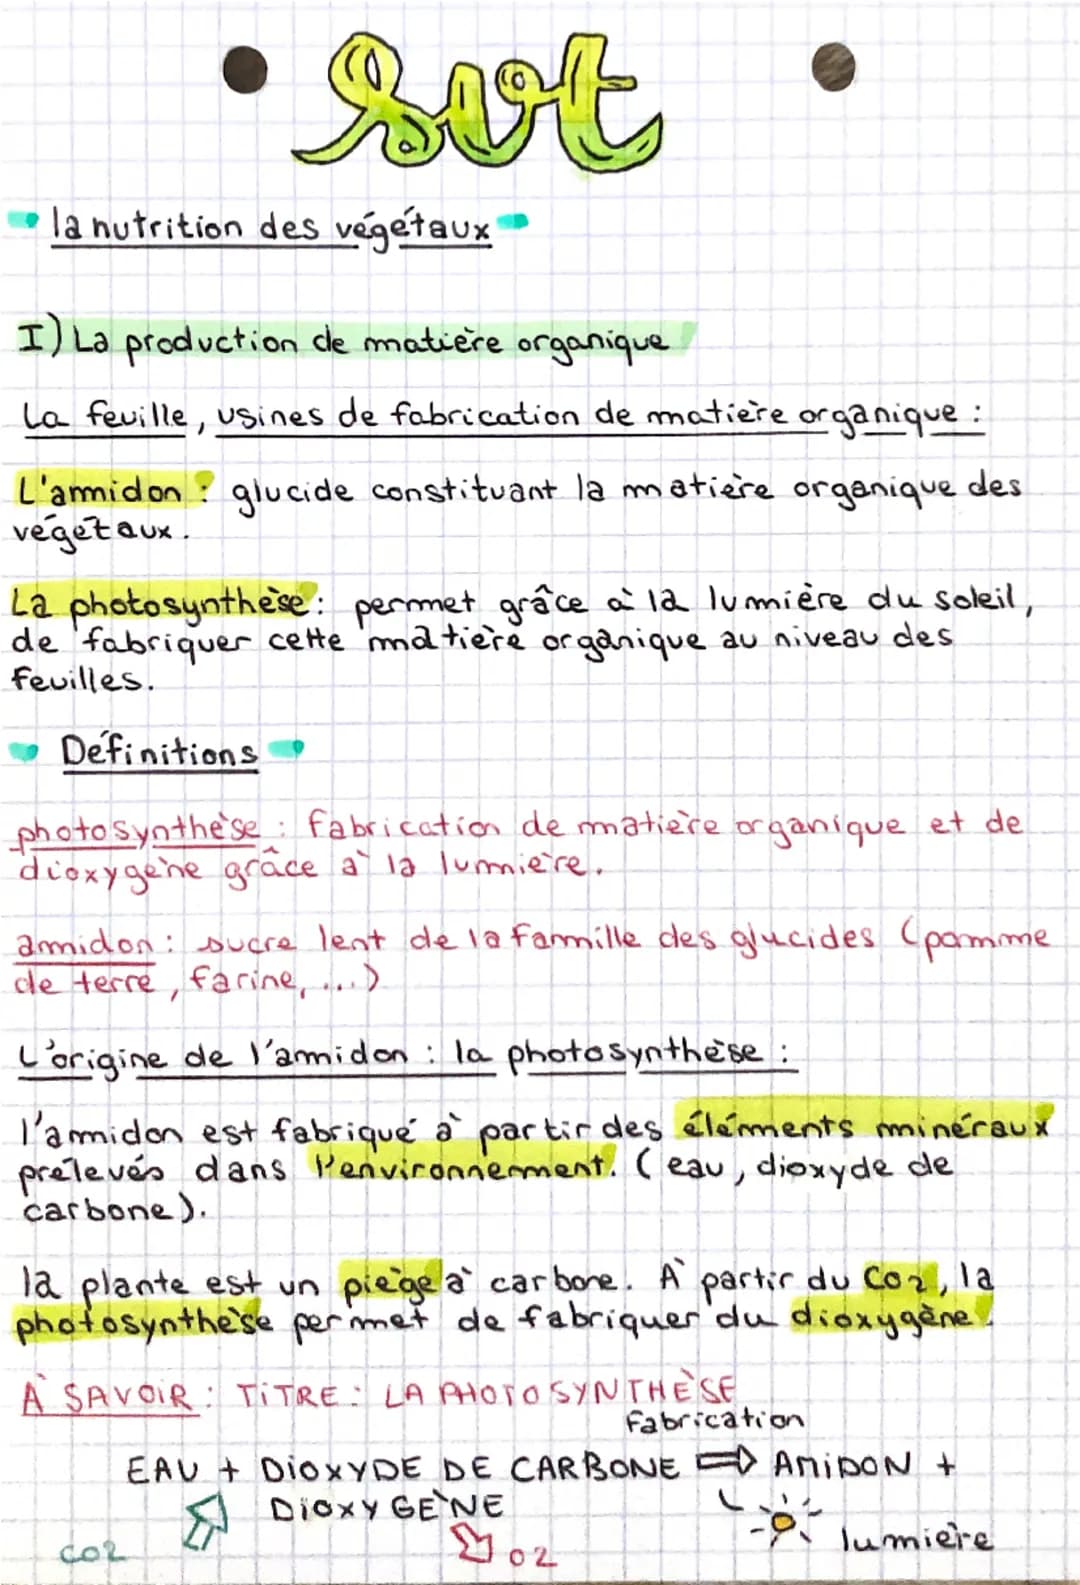 svt
la nutrition des végétaux
I) La production de matière organique
La feuille, usines de fabrication de matière organique :
L'amidon : glucide constituant la matière organique des
végétaux.
La photosynthèse : permet grâce à la lumière du soleil,
de fabriquer cette matière organique au niveau des
feuilles.
Définitions
photosynthèse : fabrication de matière organique et de
dioxygène grâce à la lumière.
amidon : sucre lent de la famille des glucides (pomme
de terre, farine, ...)
L'origine de l'amidon : la photosynthèse :
l'amidon est fabriqué à partir des éléments minéraux
prélevés dans l'environnement. (eau, dioxyde de
carbone).
la plante est un piège à carbone. À partir du CO2, la
photosynthèse permet de fabriquer du dioxygène.
À SAVOIR : TITRE : LA PHOTOSYNTHÈSE
fabrication
EAU + DIOXYDE DE CARBONE ⇒ AMIDON +
DIOXYGÈNE
lumière
CO2
O2